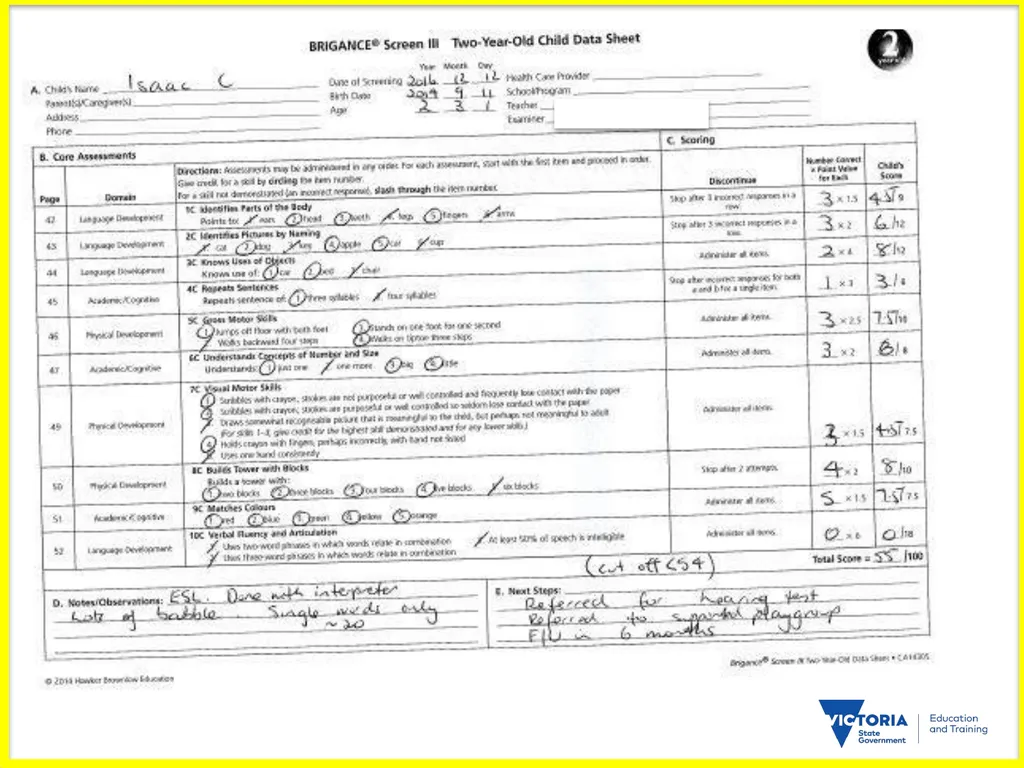 BRIGANCE® Screen III Two-Year-Old Child Data Sheet
2
year old
A. Child's Name Isaac C
Parent(s)/Caregiver(s)
Address
Phone
Year Month Day
Date of Screening 2016 12 12
Birth Date 2014 9 11
Age 2 3 1
Health Care Provider
School/Program
Teacher
Examiner
B. Core Assessments
C. Scoring
Page
Domain
Directions: Assessments may be administered in any order. For each assessment, start with the first item and proceed in order.
Give credit for a skill by circling the item number.
For a skill not demonstrated (an incorrect response), slash through the item number.
Discontinue
Number Correct
x Point Value
for Each
Child's
Score
42 Language Development
1C Identifies Parts of the Body
Points to: 1 ears 2 head 3 teeth 4 legs 5 fingers 6 arms
Stop after 3 incorrect responses in a row.
3 × 1.5 4.5/9
43 Language Development
2C Identifies Pictures by Naming
1 cat 2 dog 3 key 4 apple 5 car 6 cup
Stop after 3 incorrect responses in a row.
3 × 2 6/12
44 Language Development
3C Knows Uses of Objects
Knows use of: 1 car 2 bed 3 chair
Administer all items.
2 × 4 8/12
45 Academic/Cognitive
4C Repeats Sentences
Repeats sentence of: 1 three syllables 2 four syllables
Stop after incorrect responses for both a and b for a single item.
1 × 3 3/6
46 Physical Development
5C Gross Motor Skills
1 Jumps off floor with both feet 3 Stands on one foot for one second
2 Walks backward four steps 4 Walks on tiptoe three steps
Administer all items.
3 × 2.5 7.5/10
47 Academic/Cognitive
6C Understands Concepts of Number and Size
Understands: 1 just one 2 one more 3 big 4 little
Administer all items.
3 × 2 6/8
49 Physical Development
7C Visual Motor Skills
1 Scribbles with crayon, strokes are not purposeful or well controlled and frequently lose contact with the paper
2 Scribbles with crayon, strokes are purposeful or well controlled so seldom lose contact with the paper
3 Draws somewhat recognisable picture that is meaningful to the child, but perhaps not meaningful to adult
(For skills 1–3, give credit for the highest skill demonstrated and for any lower skills.)
4 Holds crayon with fingers, perhaps incorrectly, with hand not fisted
5 Uses one hand consistently
Administer all items.
3 × 1.5 4.5/7.5
50 Physical Development
8C Builds Tower with Blocks
Builds a tower with:
1 two blocks 2 three blocks 3 four blocks 4 five blocks 5 six blocks
Stop after 2 attempts.
4 × 2 8/10
51 Academic/Cognitive
9C Matches Colours
1 red 2 blue 3 green 4 yellow 5 orange
Administer all items.
5 × 1.5 7.5/7.5
52 Language Development
10C Verbal Fluency and Articulation
1 Uses two-word phrases in which words relate in combination 3 At least 50% of speech is intelligible
2 Uses three-word phrases in which words relate in combination
Administer all items.
0 × 6 0/18
(cut off <54)
Total Score = 55 /100
D. Notes/Observations: ESL. Done with interpreter
Lots of babble. Single words only
~20
E. Next Steps:
Referred for hearing test
Referred to supported playgroup
F/U in 6 months
© 2014 Hawker Brownlow Education
Brigance® Screen III Two-Year-Old Data Sheet •
VICTORIA
State
Government
Education
and Training